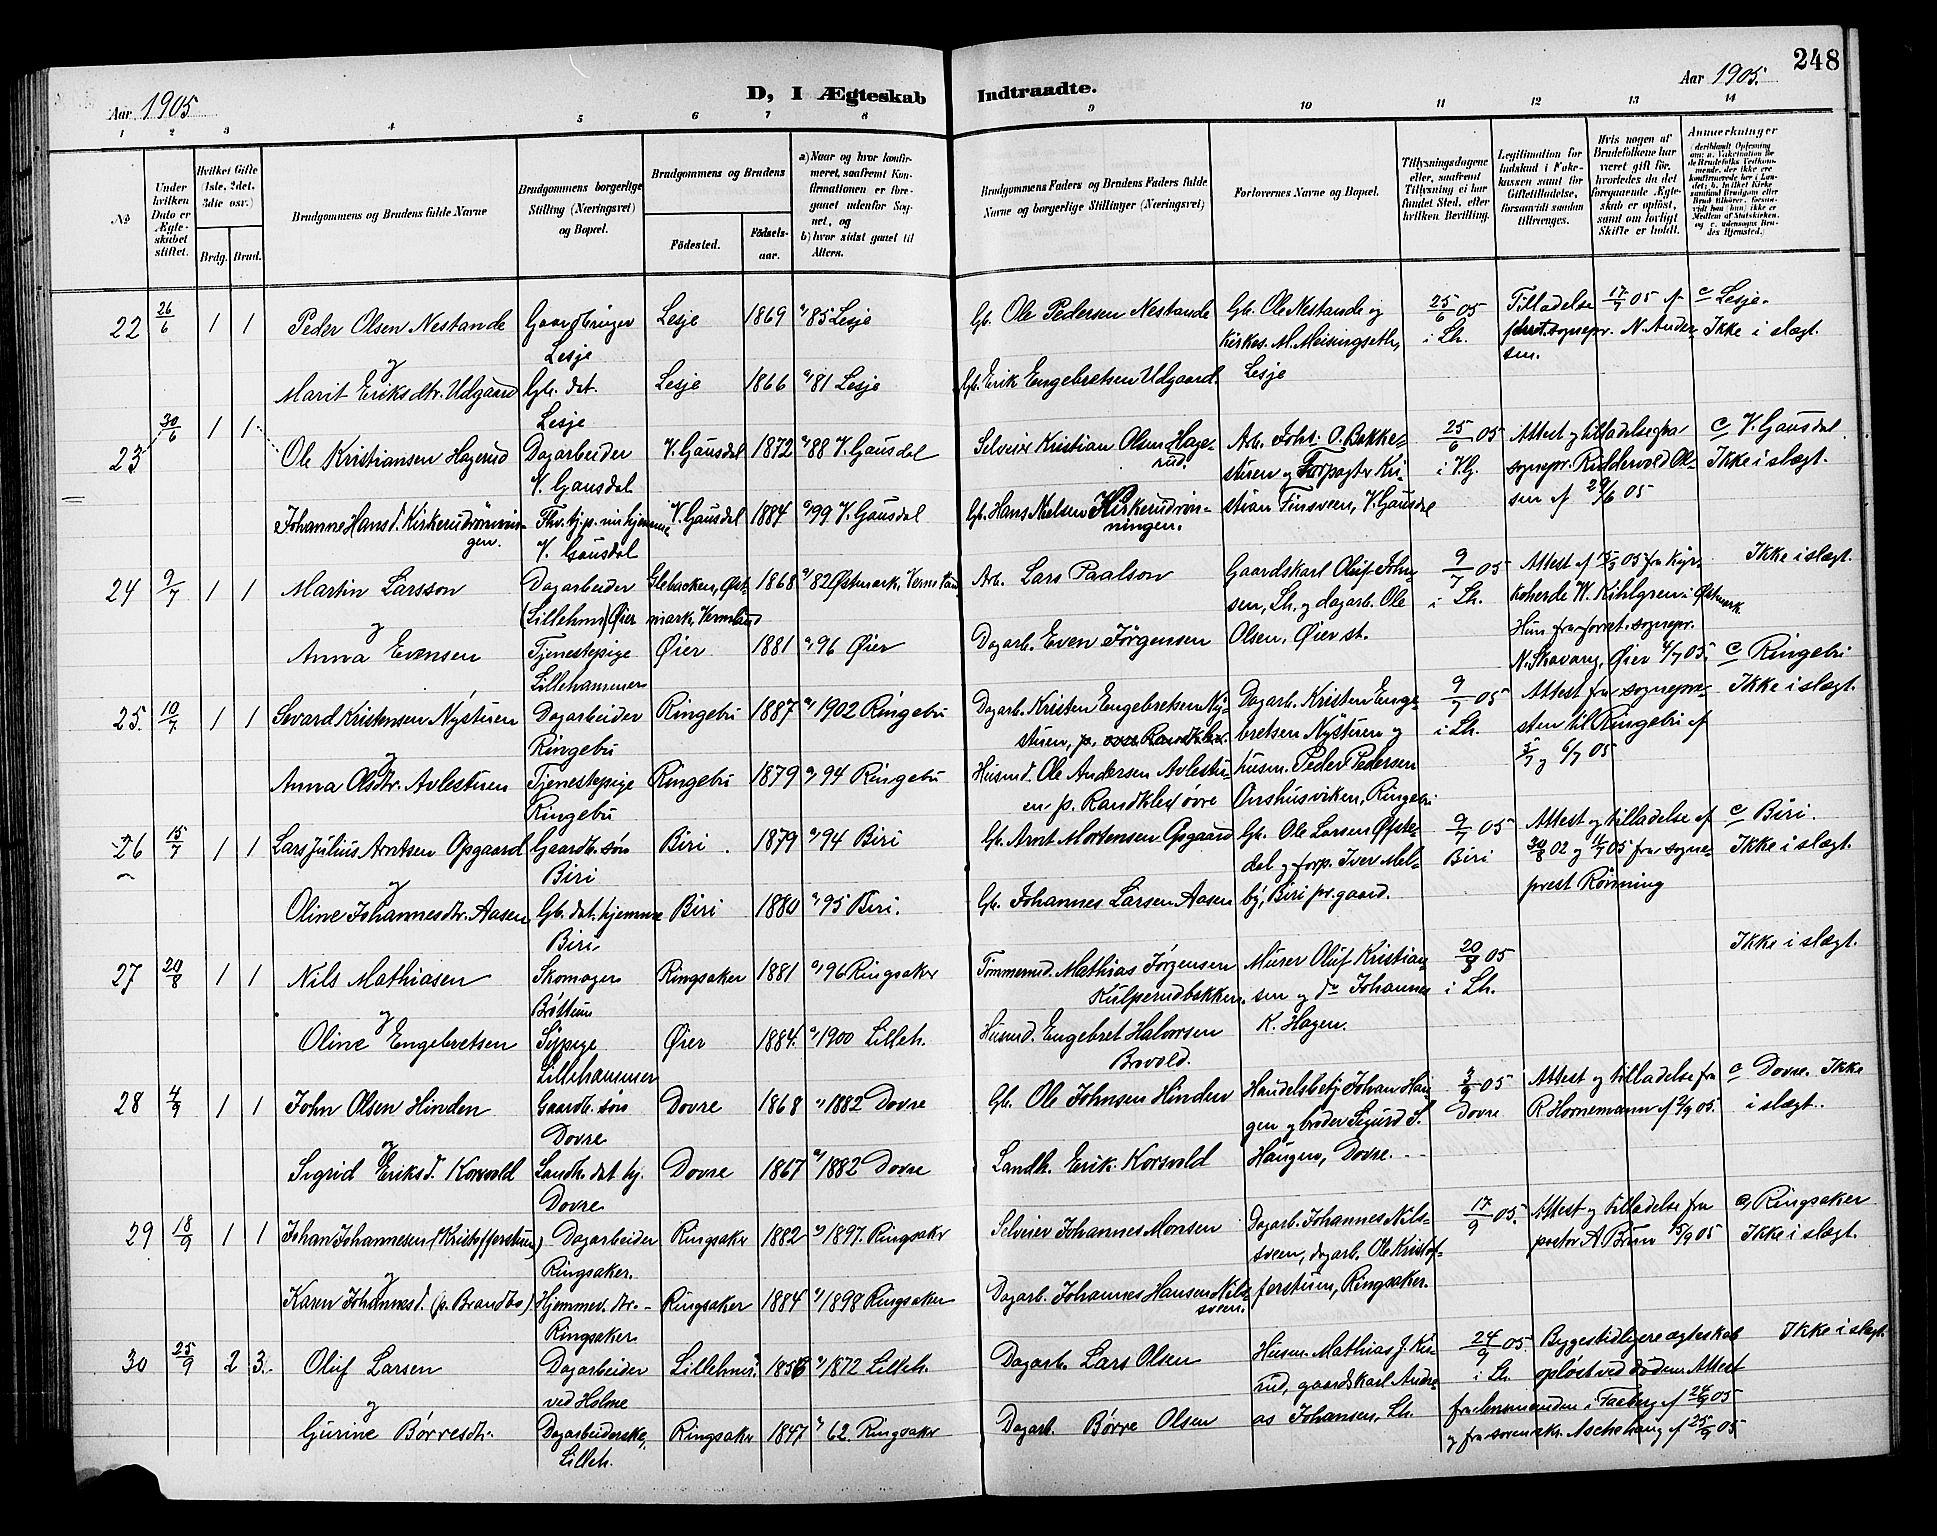 248
Aar 1905
D, I Ægteskab Indtraadte.
Aar 1905.
1 2 3 4 5 6 7 8 9 10 11 12 13 14
No
Under hvilken Dato er Ægteskabet stiftet.
Hvilket Gifte (1ste, 2det, 3die osv.)
Brdg. Brud.
Brudgommens og Brudens fulde Navne
Brudgommens borgerlige Stilling (Næringsvei) og Bopæl.
Brudgommens og Brudens
Födested. Födselsaar.
a) Naar og hvor konfirmeret, saafremt Konfirmationen er foregaaet udenfor Sognet, og b) hvor sidst gaaet til Alters.
Brudgommens Faders og Brudens Faders fulde Navne og borgerlige Stillinger (Næringsvei)
Forlovernes Navne og Bopæl.
Tillysningsdagene eller, saafremt Tillysning ei har fundet Sted, efter hvilken Bevilling.
Legitimation for Indskud i Enkekassen samt for Giftetilladelse, forsaavidt saadan tiltrænges.
Hvis nogen af Brudefolkene har været gift før, hvorledes da det foregaaende Ægteskab er opløst, samt om lovligt Skifte er holdt.
Anmærkninger
22 26/6 1 1 Peder Olsen Nestande Gaardbruger Lesje Lesje 1869 85 Lesje Gb. Ole Pedersen Nestande Gb. Ole Nestande og Kirkes. M. Meisingseth, Lesje 25/6 05 i Lh. Tilladelse 17/7 05 af sognepr. N. Andersen. c Lesje. Ikke i slægt.
og
Marit Eriksdtr. Udgaard Gb. dat. Lesje Lesje 1866 81 Lesje Gb. Erik Engebretsen Udgaard.
23 30/6 1 1 Ole Kristiansen Hagerud Dagarbeider V. Gausdal V. Gausdal 1872 88 V. Gausdal Selveier Kristian Olsen Hagerud. Arb. Joh. O. Bakkestuen og Forpagter Kristian Finsveen, V. Gausdal 25/6 05 i V.G. Attest og tilladelse fra sognepr. Riddervold Olsen af 29/6 05 c V. Gausdal. Ikke i slægt.
Johanne Hansd. Kirkerudrønningen. V. Gausdal V. Gausdal 1884 99 V. Gausdal Gb. Hans Nielsen Kirkerudrønningen.
24 9/7 1 1 Martin Larsson Dagarbeider (Lillehmr) Øier Glebacken, Østmark, Vermland 1868 82 Østmark, Vermland Arb. Lars Paalson Gaardskarl Oluf Johnsen, Lh. og dagarb. Ole Olsen, Øier st. 9/7 05 i Lh. Attest af 15/5 05 fra Kyrkoherde W. Kihlgren i Østmark. Hun fra forret. sognepr. N. Skavang, Øier 4/7 05. Ikke i slægt.
og
Anna Evensen Tjenestepige Lillehammer Øier 1881 96 Øier Dagarb. Even Jørgensen
25. 10/7 1 1 Sevard Kristensen Nysturen Dagarbeider Ringebu Ringebu 1887 1902 Ringebu Dagarb. Kristen Engebretsen Nystuen, p. øvre Randklev. Dagarb. Kristen Engebretsen Nysturen og husm. Peder Pedersen Onshusviken, Ringebu 9/7 05 i Lh. Attest fra sognepresten til Ringebu af 5/7 og 6/7 05 c Ringebu Ikke i slægt.
og
Anna Olsdtr. Avlestuen Tjenestepige Ringebu Ringebu 1879 94 Ringebu Husmd. Ole Andersen Avlestuen p. Randklev øvre
26 15/7 1 1 Lars Julius Arntsen Opgaard Gaardb. søn Biri Biri. 1879 94 Biri Gb. Arnt Mortensen Opgaard Gb. Ole Larsen Øfstedal og forp. Iver Melby, Biri pr.gaard. 9/7 05 Biri Attest og tilladelse af 30/8 02 og 11/7 05 fra sogneprest Rønning c Biri. Ikke i slægt.
og
Oline Johannesdtr. Aasen Gb. dat. hjemme Biri Biri 1880 95 Biri. Gb. Johannes Larsen Aasen
27 20/8 1 1 Nils Mathiasen Skomager Brøttum Ringsaker 1881 96 Ringsaker Tømmermd. Mathias Jørgensen Kulperudbakken. Murer Oluf Kristiansen og do Johannes K. Hagen. 20/8 05 i Lh. Ikke i slægt.
og
Oline Engebretsen Sypige Lillehammer Øier 1884. 1900 Lilleh. Husmd. Engebret Halvorsen Brovold.
28 4/9 1 1 John Olsen Hinden Gaardb. søn Dovre Dovre 1868 1882 Dovre Gb. Ole Johnsen Hinden Handelsbetj. Johan Haugen og broder Sigurd S. Haugen, Dovre. 3/9 05 Dovre Attest og tilladelse fra R Hornemann af 2/9 05. c Dovre. Ikke i slægt.
og
Sigrid Eriksd. Korsvold Landh. dat. hj. Dovre Dovre 1867 1882 Dovre Landh. Erik Korsvold
29 18/9 1 1 Johan Johannesen (Kristofferstuen) Dagarbeider Ringsaker. Ringsaker 1882 1897. Ringsaker Selveier Johannes Monsen Dagarb. Johannes Nilssveen, dagarb. Ole Kristofferstuen, Ringsaker. 17/9 05. Attest og tilladelse fra pastor A Bruun 15/9 05 c) Ringsaker Ikke i slægt.
og
Karen Johannesd. (p. Brandbo) Hjemmev. dtr. Ringsaker Ringsaker 1884 1898 Ringsaker Dagarb. Johannes Hansen Nilssveen.
30 25/9 2 3. Oluf Larsen Dagarbeider ved Holme Lillehmr. 1856 1872 Lilleh. Dagarb. Lars Olsen Husm. Mathias J. Kisrud, gaardskarl Andreas Johansen, Lh. 24/9 05. i Lh. Begges tidligere ægteskab opløst ved døden. Attest fra lensmanden i Faaberg af 24/9 05 og fra sorenskr. Aschehoug af 25/9 05 Ikke i slægt.
og
Gurine Børresdtr. Dagarbeiderske, Lilleh. Ringsaker 1847 62. Ringsaker Dagarb. Børre Olsen